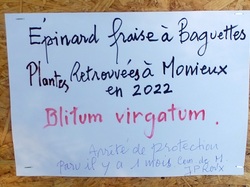 Épinard fraise à Baguettes
Plantes Retrouvées à Monieux
en 2022
Blitum virgatum.
Arrêté de protection
Paru il y a 1 mois Com de M.